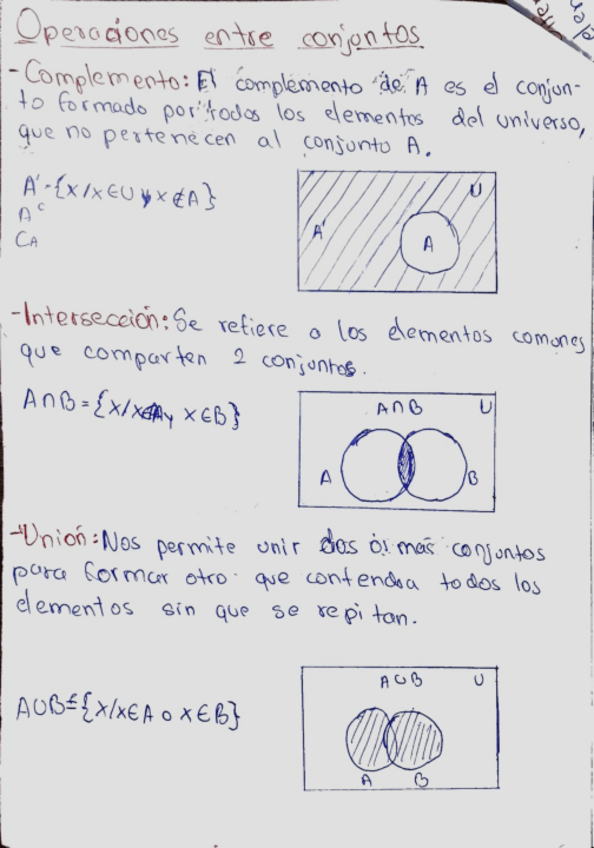 Operaciones entre conjuntos
-Complemento: El complemento de A es el conjun-
to formado por todos los elementos del universo,
que no pertenecen al conjunto A.
A'={x/x∈U y x∉A}
A^c
CA
U
A'
A
-Intersección: Se refiere a los elementos comones
que comparten 2 conjuntos.
A∩B={x/x∈A y x∈B}
A∩B U
A B
-Unión: Nos permite unir dos ó más conjuntos
para formar otro que contendra todos los
elementos sin que se repitan.
A∪B={x/x∈A o x∈B}
A∪B U
A B